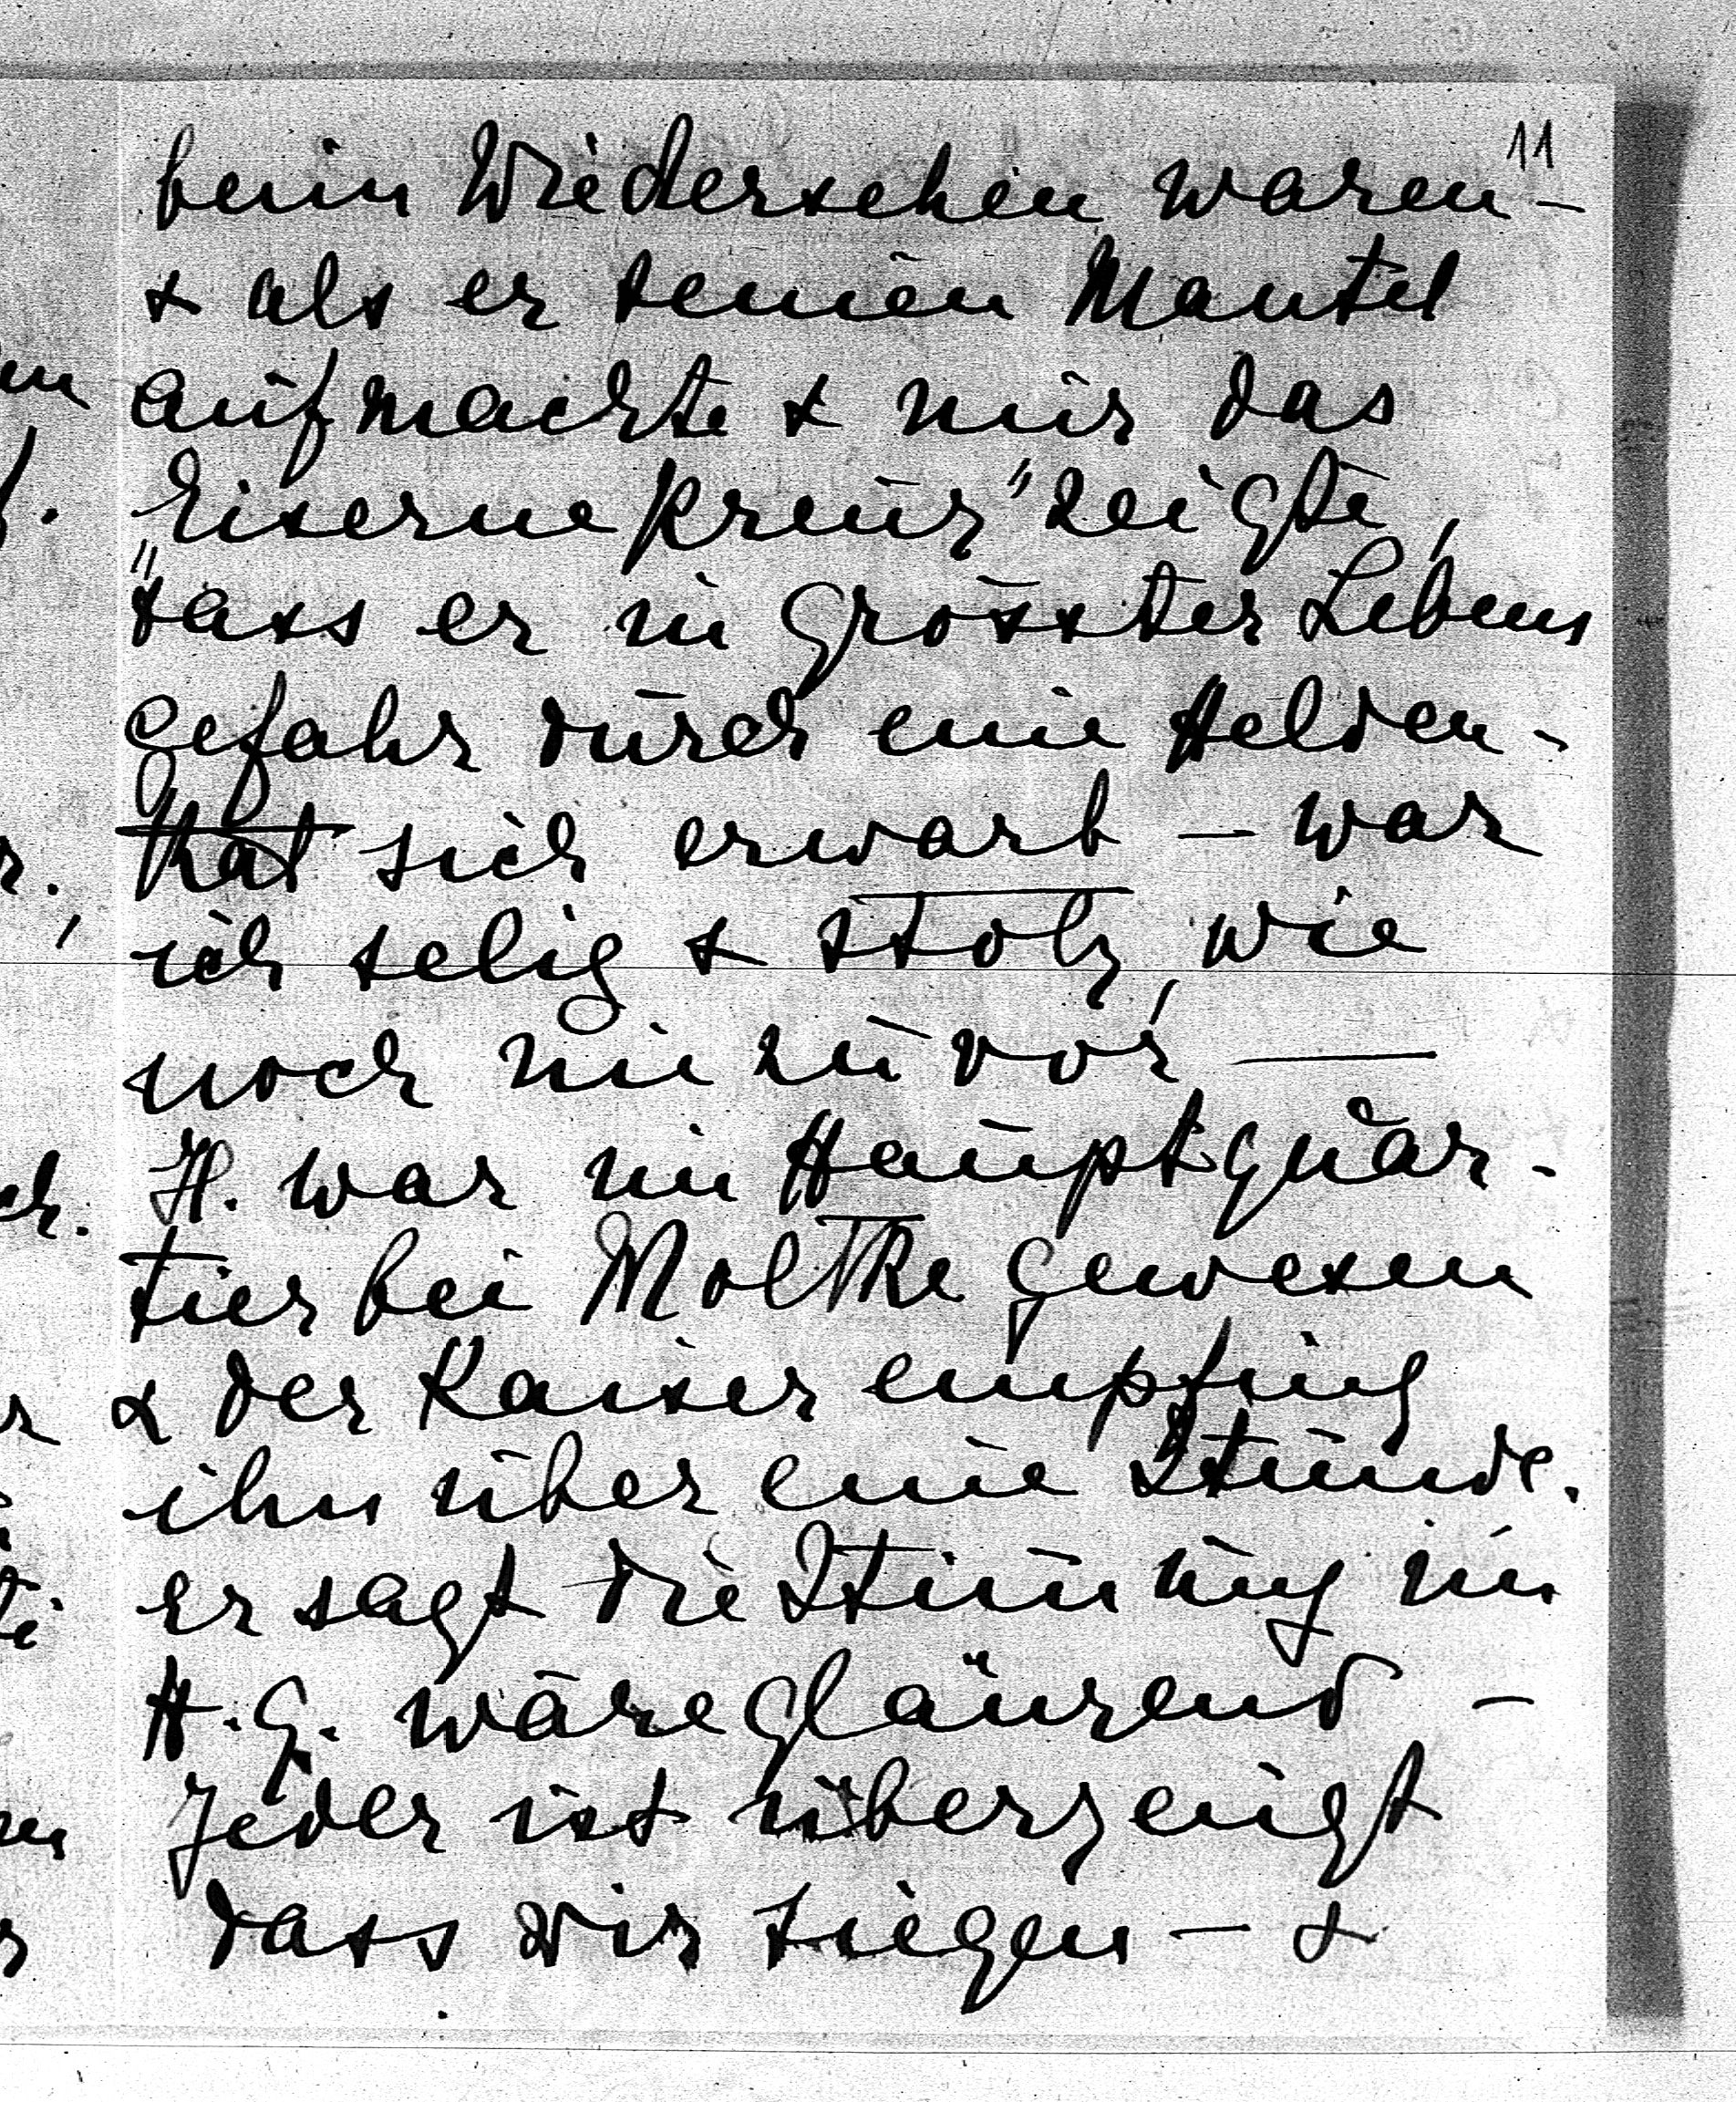 11
beim Wiedersehen waren -
& als er seinen Mantel
aufmachte & mir das
"Eiserne Kreuz" zeigte,
dass er in grösster Lebens
gefahr durch eine Helden-
that sich erwarb - war
ich selig & stolz, wie
noch nie zuvor, —
H. war im Hauptquar-
tier bei Moltke gewesen
& der Kaiser empfing
ihn über eine Stunde.
er sagt die Stimmung im
H.Q. wäre glänzend -
Jeder ist überzeugt
dass wir siegen - &